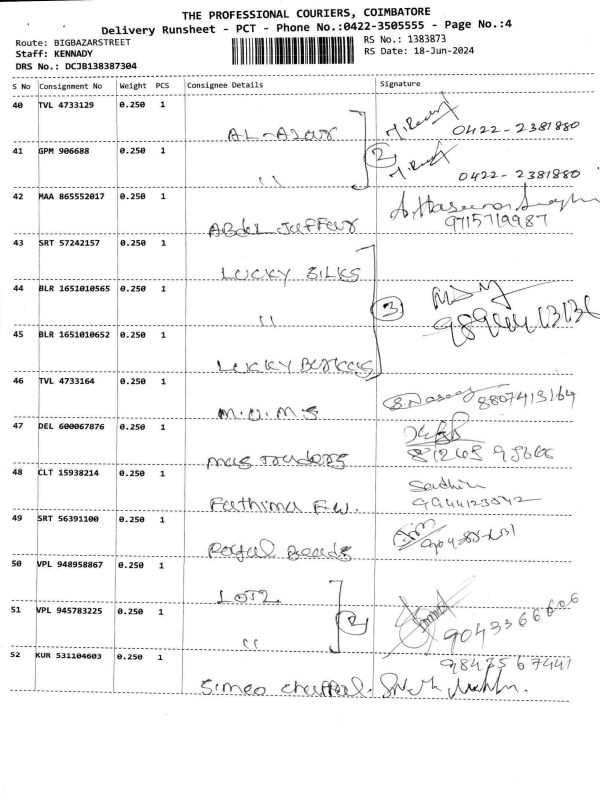 THE PROFESSIONAL COURIERS, COIMBATORE
Delivery Runsheet - PCT - Phone No.:0422-3505555 - Page No.:4
Route: BIGBAZARSTREET
Staff: KENNADY
DRS No.: DCJB138387304
RS No.: 1383873
RS Date: 18-Jun-2024
S No Consignment No Weight PCS Consignee Details Signature
40 TVL 4733129 0.250 1
AL-Azar 0422-2381880
41 GPM 906688 0.250 1
" 2 0422-2381880
42 MAA 865552017 0.250 1
Abdul Jaffar 9715719987
43 SRT 57242157 0.250 1
LUCKY SILKS
44 BLR 1651010565 0.250 1
" 3
45 BLR 1651010652 0.250 1
LUCKY
46 TVL 4733164 0.250 1
M.U.M.S 8807413164
47 DEL 600067876 0.250 1
Mas Traders
48 CLT 15938214 0.250 1
Fathima F.W.
49 SRT 56391100 0.250 1
Royal Beads
50 VPL 948958867 0.250 1
51 VPL 945783225 0.250 1
" 2 9043366606
52 KUR 531104603 0.250 1
9843567441